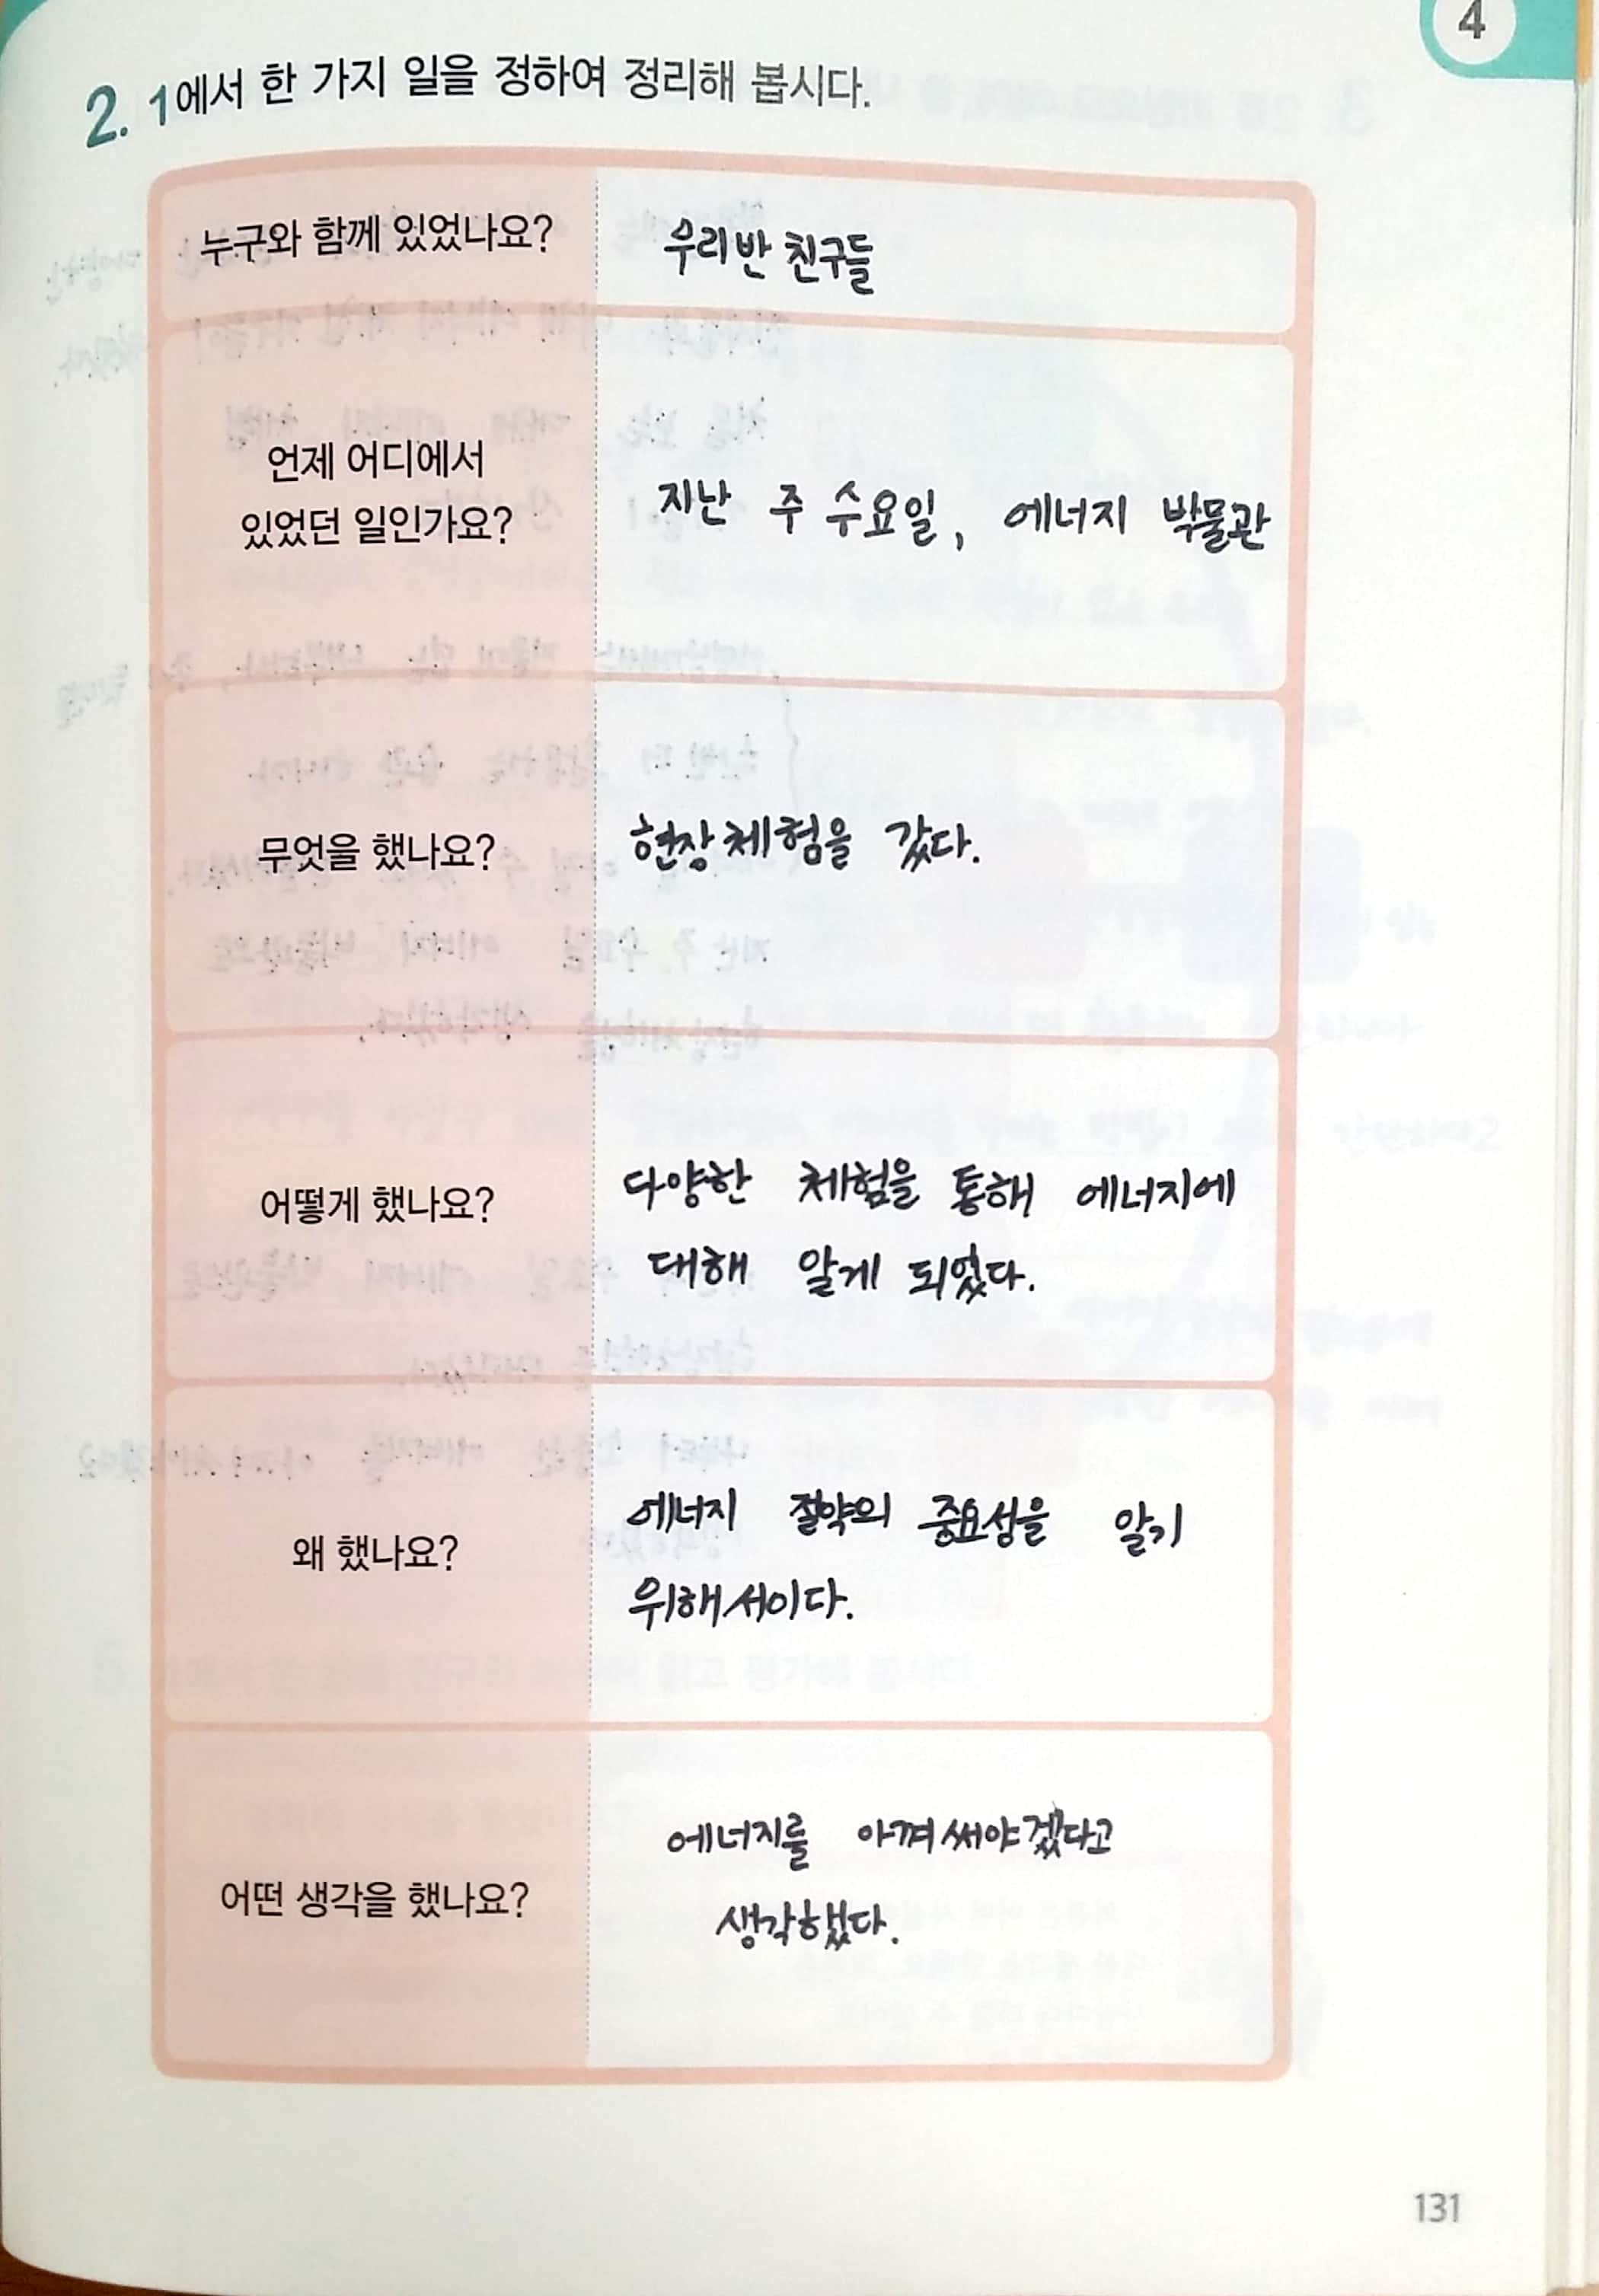 4
2. 1에서 한 가지 일을 정하여 정리해 봅시다.
누구와 함께 있었나요?
우리반 친구들
언제 어디에서
있었던 일인가요?
지난 주 수요일, 에너지 박물관
무엇을 했나요?
현장체험을 갔다.
어떻게 했나요?
다양한 체험을 통해 에너지에
대해 알게 되었다.
왜 했나요?
에너지 절약의 중요성을 알기
위해서이다.
어떤 생각을 했나요?
에너지를 아껴써야겠다고
생각했다.
131